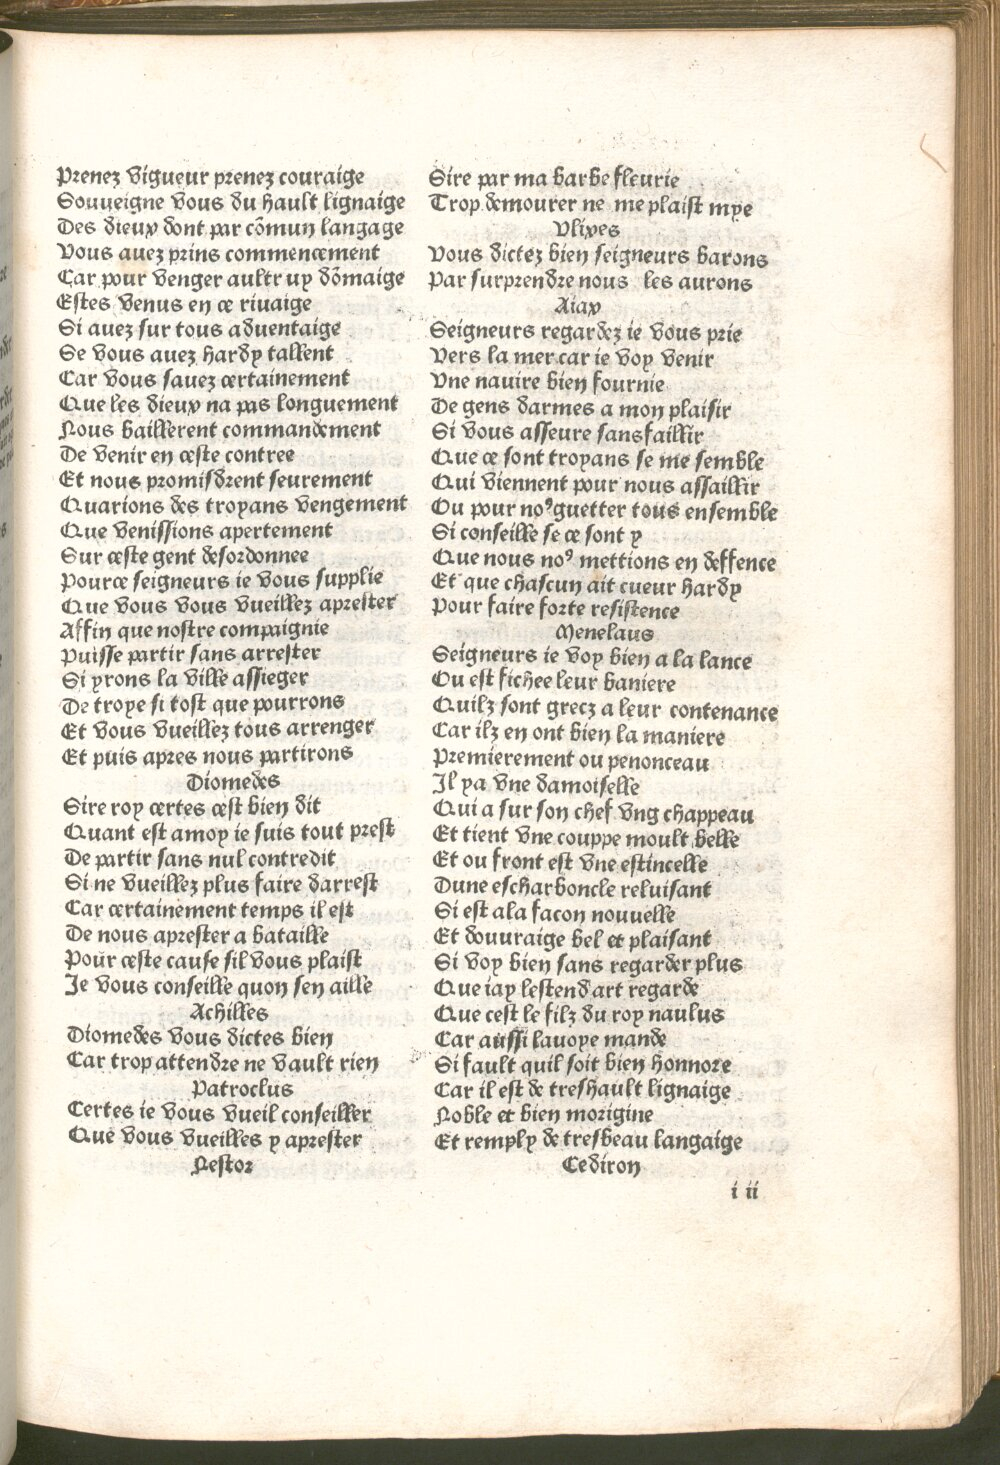 Prenez vigueur prenez couraige
Souveigne vous du hault lignaige
Des dieux dont par cõmun langage
Vous avez prins commencement
Car pour venger aultruy dõmaige
Estes venus en ce rivaige
Si avez sur tous adventaige
Se vous avez hardy tallent
Car vous savez certainement
Que les dieux na pas longuement
Nous baillerent commandement
De venir en ceste contree
Et nous promisdrent seurement
Quarions des troyans vengement
Que venissions apertement
Sur ceste gent desordonnee
Pource seigneurs ie vous supplie
Que vous vous vueillez aprester
Affin que nostre compaignie
Puisse partir sans arrester
Si yrons la ville assieger
De troye si tost que pourrons
Et vous vueillez tous arrenger
Et puis apres nous partirons
Diomedes
Sire roy certes cest bien dit
Quant est amoy ie suis tout prest
De partir sans nul contredit
Si ne vueillez plus faire darrest
Car certainement temps il est
De nous aprester a bataille
Pour ceste cause sil vous plaist
Je vous conseille quon sen aille
Achilles
Diomedes vous dictes bien
Car trop attendre ne vault rien
Patroclus
Certes ie vous vueil conseiller
Que vous vueilles y aprester
Nestor
Sire par ma barbe fleurie
Trop demourer ne me plaist mye
Vlixes
Vous dictez bien seigneurs barons
Par surprendre nous les aurons
Aiax
Seigneurs regardez ie vous prie
Vers la mer car ie voy venir
Vne navire bien fournie
De gens darmes a mon plaisir
Si vous asseure sans faillir
Que ce sont troyans se me semble
Qui viennent pour nous assaillir
Ou pour noꝰ guetter tous ensemble
Si conseille se ce sont y
Que nous noꝰ mettions en deffence
Et que chascun ait cueur hardy
Pour faire forte resistence
Menelaus
Seigneurs ie voy bien a la lance
Ou est fichee leur baniere
Quilz sont grecz a leur contenance
Car ilz en ont bien la maniere
Premierement ou penonceau
Il ya vne damoiselle
Qui a sur son chef vng chappeau
Et tient vne couppe moult belle
Et ou front est vne estincelle
Dune escharboncle reluisant
Si est ala facon nouuelle
Et douuraige bel et plaisant
Si voy bien sans regarder plus
Que iay lestendart regarde
Que cest le filz du roy naulus
Car aussi lavoye mande
Si fault quil soit bien honnore
Car il est de treshault lignaige
Noble et bien morigine
Et remply de tresbeau langaige
Cediron
i ii